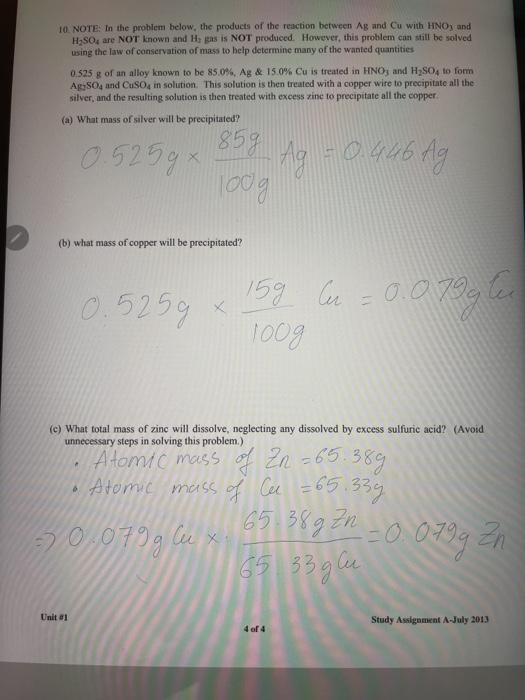 10. NOTE: In the problem below, the products of the reaction between Ag and Cu with HNO₃ and
H₂SO₄ are NOT known and H₂ gas is NOT produced. However, this problem can still be solved
using the law of conservation of mass to help determine many of the wanted quantities
0.525 g of an alloy known to be 85.0%, Ag & 15.0% Cu is treated in HNO₃ and H₂SO₄ to form
Ag₂SO₄ and CuSO₄ in solution. This solution is then treated with a copper wire to precipitate all the
silver, and the resulting solution is then treated with excess zinc to precipitate all the copper.
(a) What mass of silver will be precipitated?
0.525g × 85g/100g Ag = 0.446 Ag
(b) what mass of copper will be precipitated?
0.525g × 15g/100g Cu = 0.079g Cu
(c) What total mass of zinc will dissolve, neglecting any dissolved by excess sulfuric acid? (Avoid
unnecessary steps in solving this problem.)
• Atomic mass of Zn = 65.38g
• Atomic mass of Cu = 65.33g
⇒ 0.079g Cu × 65.38g Zn/65.33g Cu = 0.079g Zn
Unit #1
4 of 4
Study Assignment A-July 2013